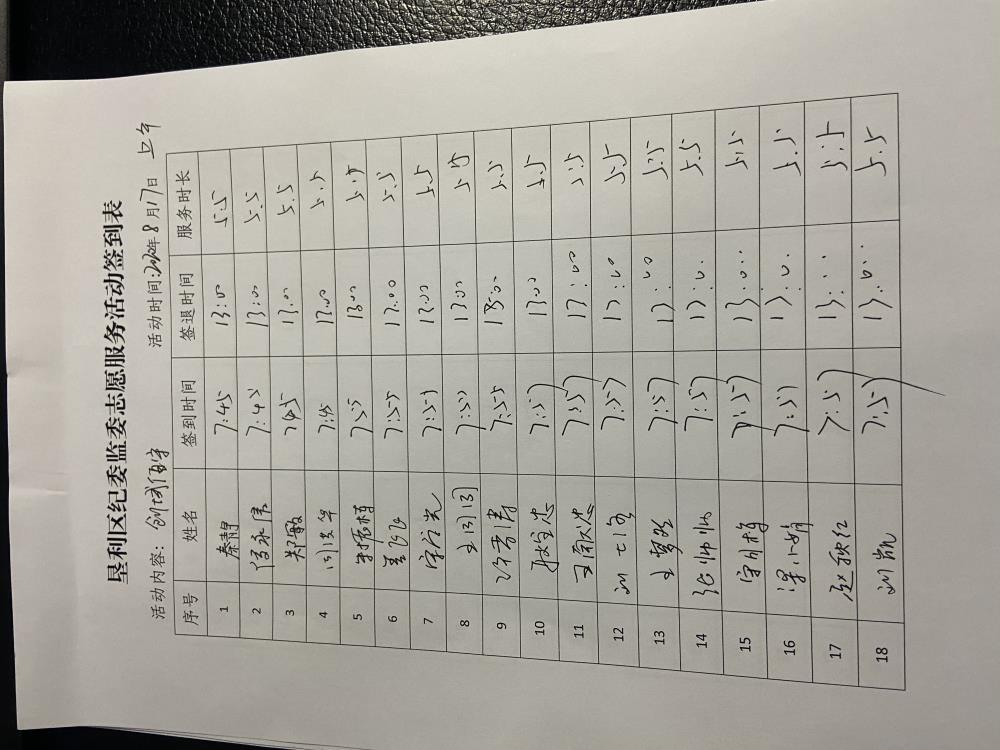 垦利区纪委监委志愿服务活动签到表
活动内容: 创城值守 活动时间:2022年8月17日 上午
序号 姓名 签到时间 签退时间 服务时长
1 秦静 7:45 13:00 5.5
2 7:45 13:00 5.5
3 郑敏 7:45 13:00 5.5
4 7:45 13:00 5.5
5 7:55 13:00 5.5
6 7:55 13:00 5.5
7 7:55 13:00 5.5
8 王玥玥 7:55 13:00 5.5
9 7:55 13:00 5.5
10 7:57 13:00 5.5
11 7:57 13:00 5.5
12 7:57 13:00 5.5
13 王梦 7:57 13:00 5.5
14 7:57 13:00 5.5
15 7:57 13:00 5.5
16 7:57 13:00 5.5
17 赵 7:57 13:00 5.5
18 刘凯 7:57 13:00 5.5